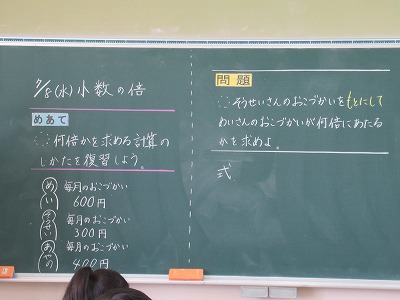 9/8(水)小数の倍
めあて
何倍かを求める計算の
しかたを復習しよう。
めい 毎月のおこづかい
600円
そうせい 毎月のおこづかい
300円
あやの 毎月のおこづかい
400円
問題
そうせいさんのおこづかいをもとにして
めいさんのおこづかいが何倍にあたる
かを求めよ。
式